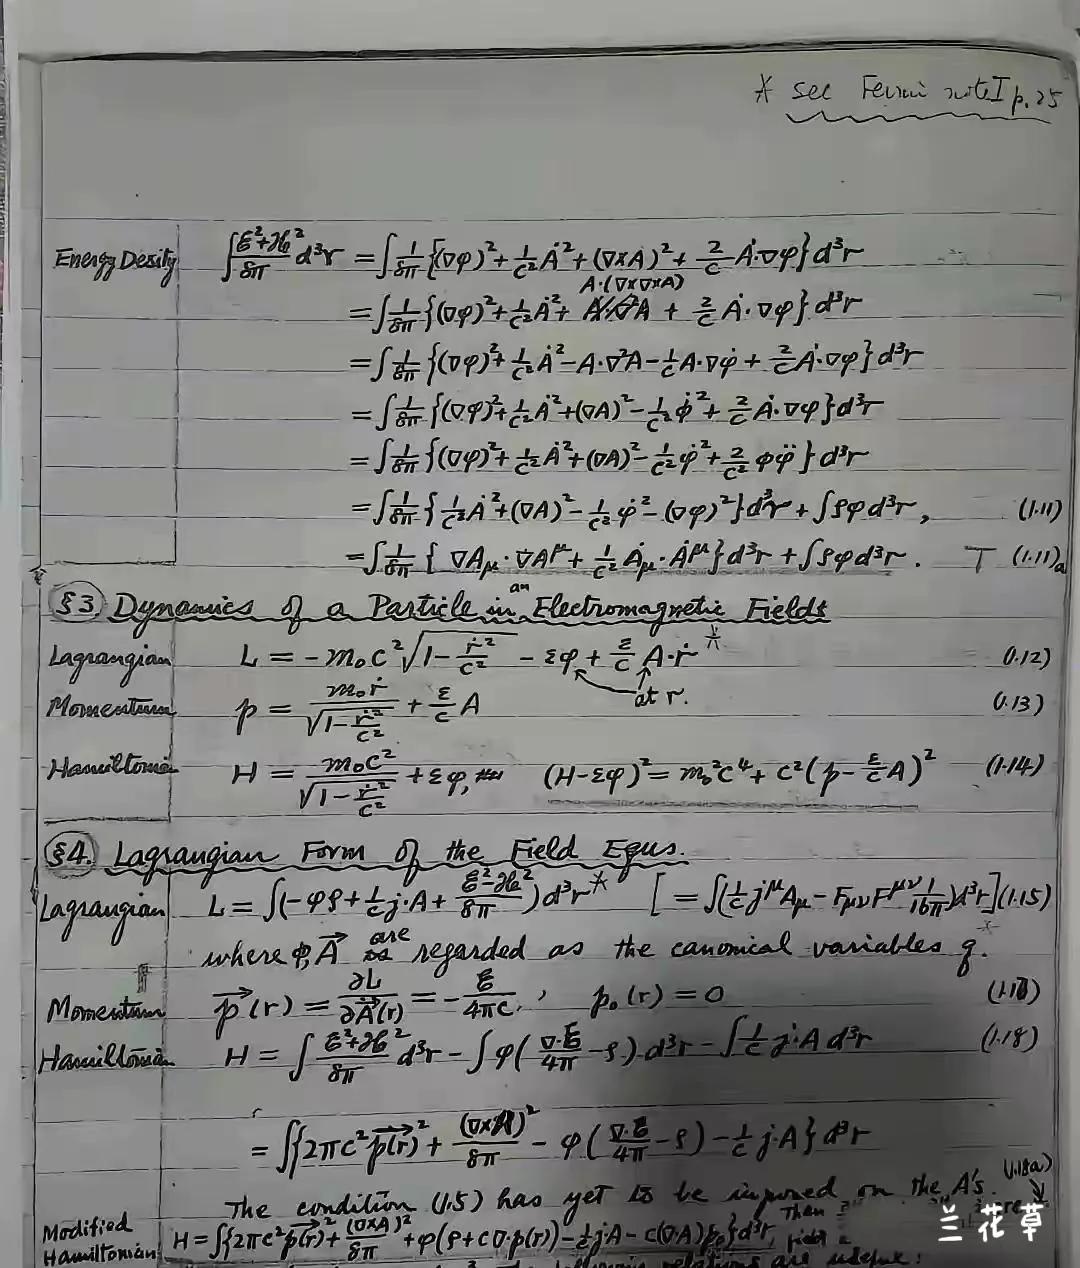 * see Fermi note I p.25
Energy Desity ∫(ℰ²+ℋ²)/8π d³r = ∫1/8π{(∇φ)²+1/c² Ȧ²+(∇×A)²+2/c Ȧ·∇φ}d³r
A·(∇×∇×A)
= ∫1/8π{(∇φ)²+1/c² Ȧ²+ + 2/c Ȧ·∇φ}d³r
= ∫1/8π{(∇φ)²+1/c² Ȧ²−A·∇²A−1/c A·∇φ̇+2/c Ȧ·∇φ}d³r
= ∫1/8π{(∇φ)²+1/c² Ȧ²+(∇A)²−1/c² φ̇²+2/c Ȧ·∇φ}d³r
= ∫1/8π{(∇φ)²+1/c² Ȧ²+(∇A)²−1/c² φ̇²+2/c² φφ̈}d³r
= ∫1/8π{1/c² Ȧ²+(∇A)²−1/c² φ̇²−(∇φ)²}d³r+∫ρφd³r, (1.11)
= ∫1/8π{∇Aμ·∇A^μ+1/c² Ȧμ·Ȧ^μ}d³r+∫ρφd³r. (1.11)a
§3. Dynamics of a Particle in an Electromagnetic Fields
Lagrangian L = −m₀c²√(1−ṙ²/c²) − εφ + ε/c A·ṙ * (1.12)
at r.
Momentum p = m₀ṙ/√(1−ṙ²/c²) + ε/c A (1.13)
Hamiltonian H = m₀c²/√(1−ṙ²/c²) + εφ, (H−εφ)² = m₀²c⁴+c²(p−ε/c A)² (1.14)
§4. Lagrangian Form of the Field Equs.
Lagrangian L = ∫(−φρ+1/c j·A+(ℰ²−ℋ²)/8π)d³r * [= ∫(1/c j^μ Aμ − Fμν F^μν 1/16π)d³r] (1.15)
where φ, A⃗ are regarded as the canonical variables q.
Momentum p⃗(r) = ∂L/∂A⃗̇(r) = −ℰ/4πc, p₀(r) = 0
Hamiltonian H = ∫(ℰ²+ℋ²)/8π d³r − ∫φ(∇·ℰ/4π −ρ)d³r − ∫1/c j·A d³r (1.18)
= ∫{2πc² p⃗(r)²+(∇×A)²/8π − φ(∇·ℰ/4π −ρ)−1/c j·A}d³r
The condition (1.5) has yet to be imposed on the A's. (1.18a)
Modified Hamiltonian H = ∫{2πc² p⃗(r)²+(∇×A)²/8π+φ(ρ+c∇·p(r))−1/c j·A−c(∇·A)p₀}d³r, Then
following relations are useful:
兰花草